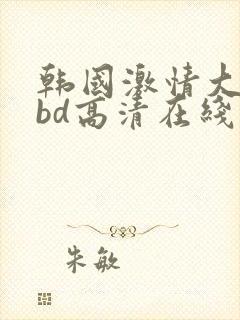 韩国激情大
bd高清在线
朱敏